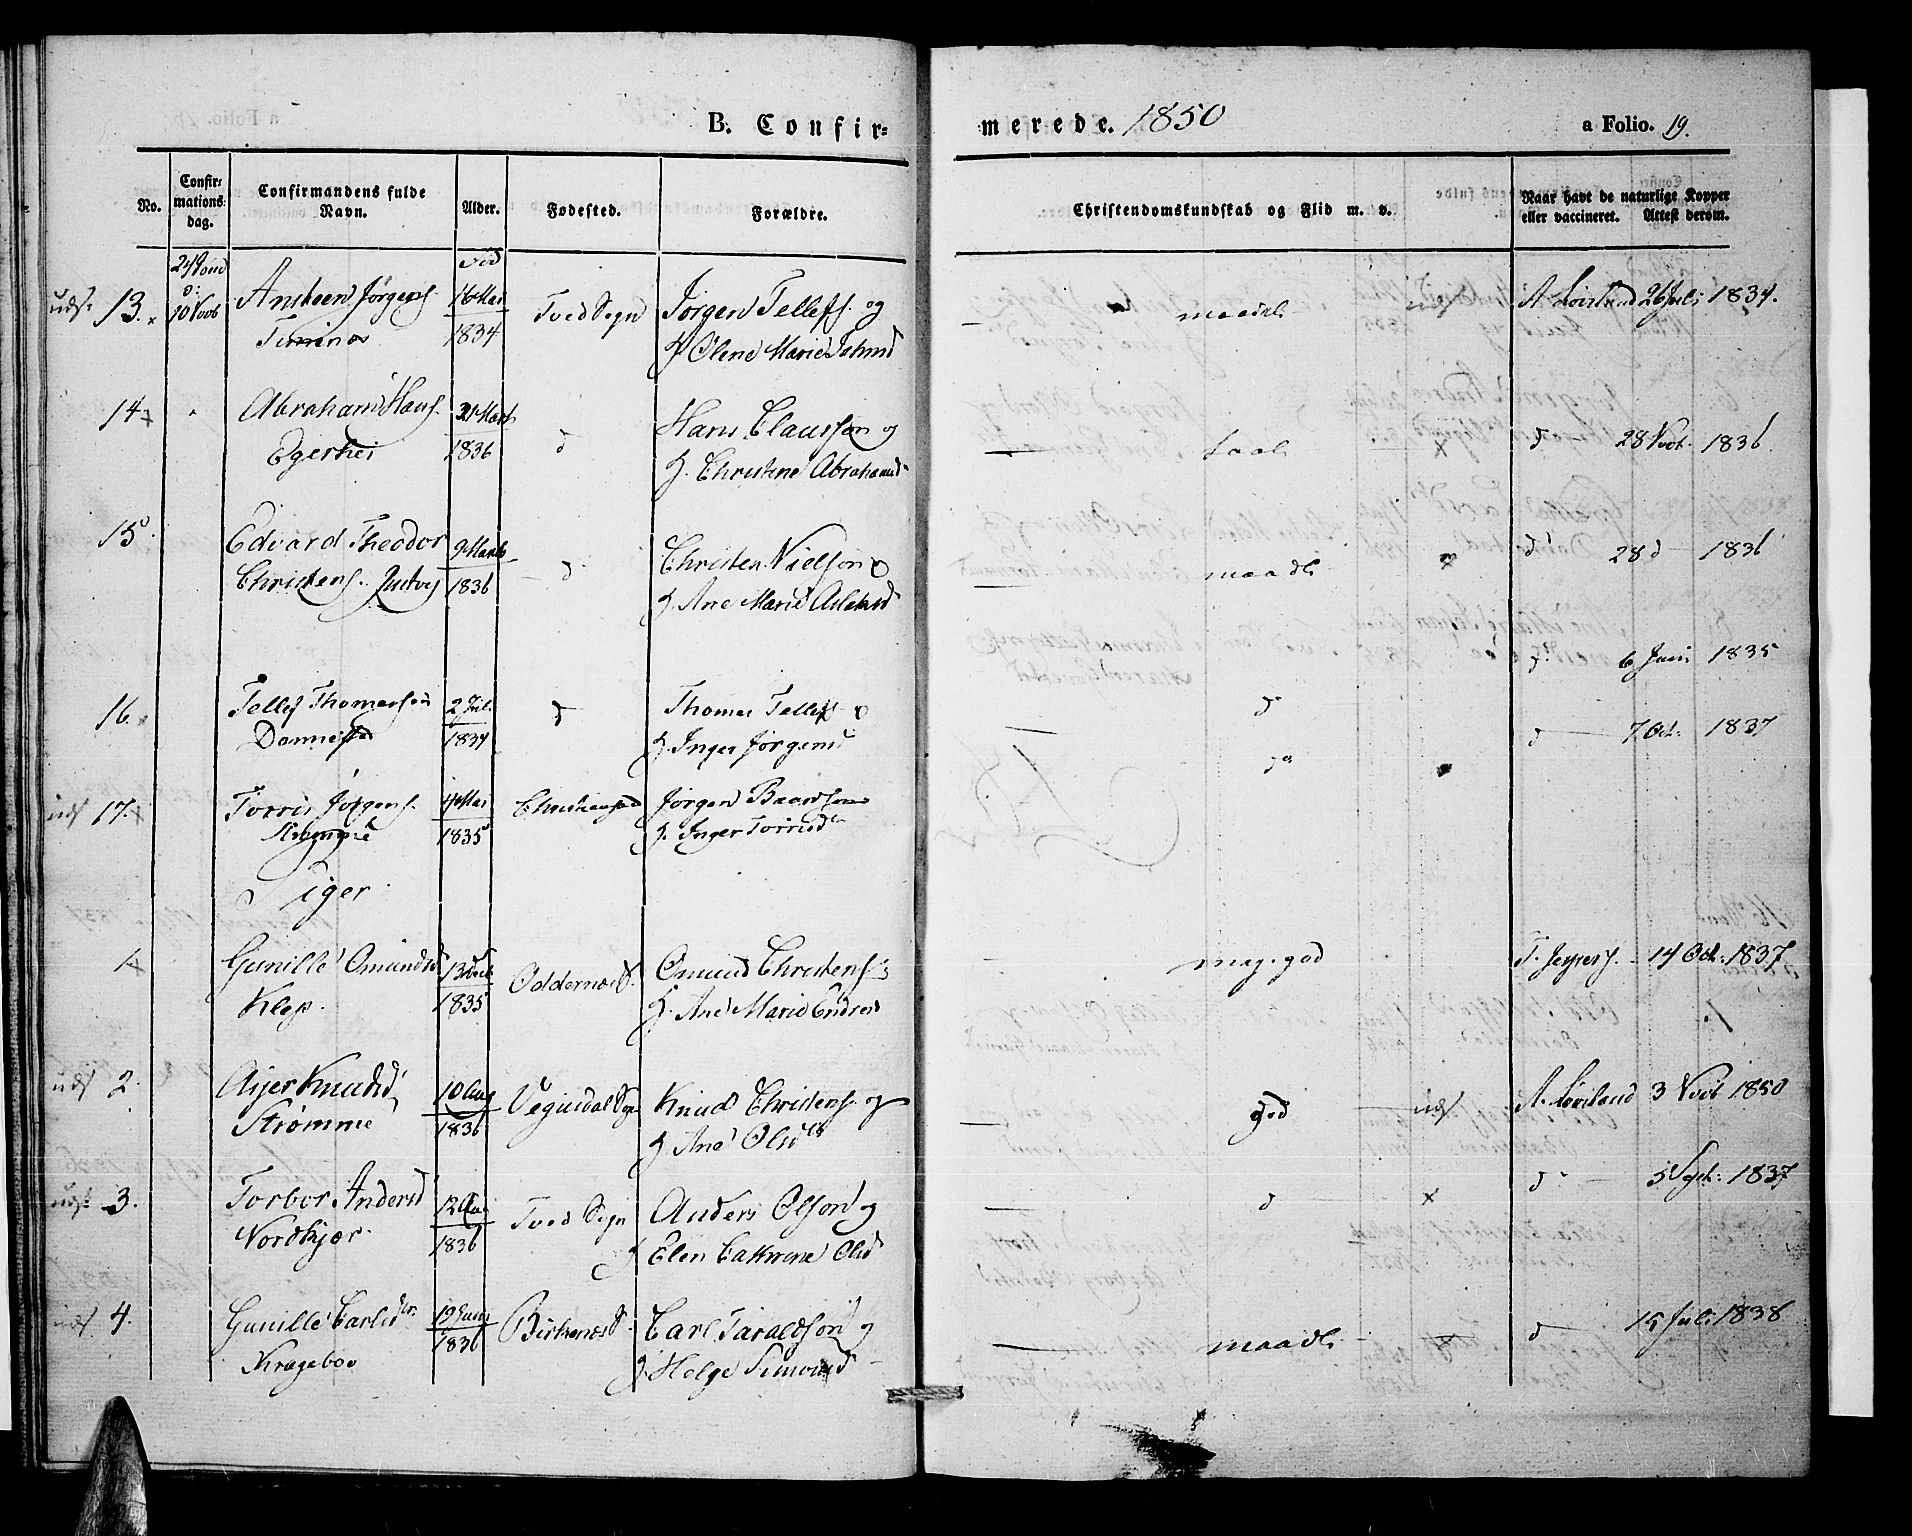 B. Confir=
merede. 1850
a Folio. 19.
No.
Confir=
mations=
dag.
Confirmandens fulde
Navn.
Alder.
Fødested.
Forældre.
Christendomskundskab og Flid m. v.
Naar havt de naturlige Kopper
eller vaccineret. Attest derom.
født
uds. 13. 10 Novb Ansteen Jørgens. 16 Mai 1834 Tved Sogn Jørgen Tellefs. og
H. Olene Marie Johnsd
maadel. A. Løviland 26 Juli 1834.
14 Abraham Hans.
Egerhei 1836 d Hans Clausson og
H. Christine Abrahamsd
taal. d 28 Novb. 1836
15 Edvard Theodor
Christens. 9 Marts 1836 d Christen Nielson &
H. Ane Marie Aslaksd
maadl. d 28 d 1836
16. Tellef Thomasson
Dannestad 2 Jul. 1834 d Thomas Tellefs &
H. Inger Jørgensd
d d 6 Juni 1835
uds 17. Torris Jørgens. 4 Mai 1835 Christiansand Jørgen Baardson
H. Inger Torrisd
d d 7 Oct: 1837
Piger.
1 Gunille Omundsd
Klep. 13 1835 Oddernæs S. Omund Christens.
H. Ane Marie Endresd
mag. god T. Jeppes. 14 Oct: 1837
uds 2. Asjer Knudsd
Strømme 10 Aug 1836 Vegusdal Sgn Knud Christens. og
H. Ane Olsd
god uds. A. Løviland 3 Novb 1850
uds. 3. Torbor Andersd
Nordkjær. 12 1836 Tved Sogn Anders Olson og
H. Elen Cathrine Olsd
d x d 5 Sept: 1837
uds. 4. Gunille Carlsd
Kragebo 19 Juni 1836 Birkenæs S. Carl Taraldson og
H. Helge Simonsd
maadl. d 15 Juli 1838